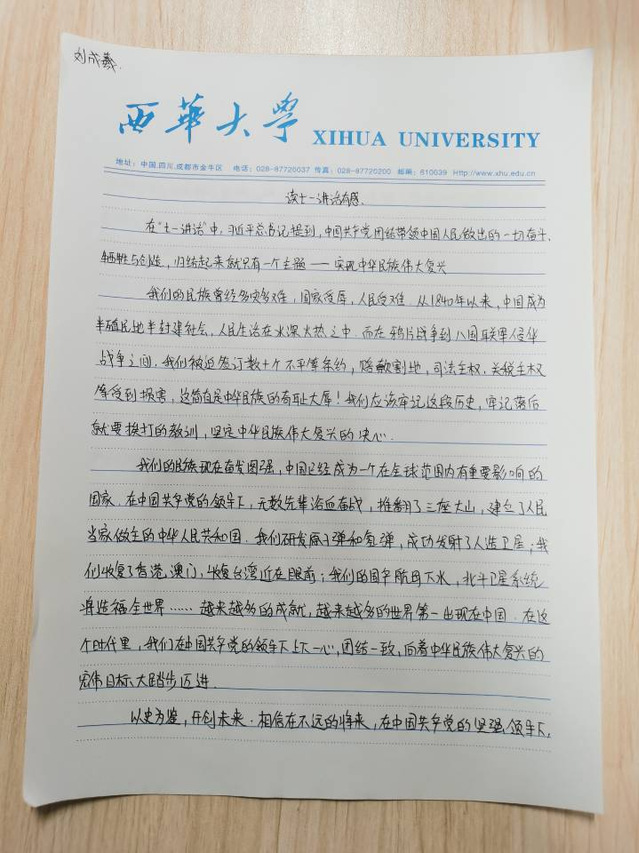 刘成義.
西華大學 XIHUA UNIVERSITY
地址：中国.四川.成都市金牛区 电话：028-87720037 传真：028-87720200 邮编：610039 Http://www.xhu.edu.cn
读七一讲话有感.
在“七一讲话”中，习近平总书记提到，中国共产党团结带领中国人民做出的一切奋斗、
牺牲与创造，归结起来就只有一个主题——实现中华民族伟大复兴
我们的民族曾经多灾多难，国家受辱，人民受难.从1840年以来，中国成为
半殖民地半封建社会，人民生活在水深火热之中.而在鸦片战争到八国联军侵华
战争之间，我们被迫签订数十个不平等条约，赔款割地，司法主权，关税主权
等受到损害，这简直是中华民族的奇耻大辱！我们应该牢记这段历史，牢记落后
就要挨打的教训，坚定中华民族伟大复兴的决心.
我们的民族现在奋发图强，中国已经成为一个在全球范围内有重要影响的
国家.在中国共产党的领导下，无数先辈浴血奋战，推翻了三座大山，建立了人民
当家做主的中华人民共和国.我们研发原子弹和氢弹，成功发射了人造卫星；我
们收复了香港澳门，收复台湾近在眼前；我们的国产航母下水，北斗卫星系统
将造福全世界……越来越多的成就，越来越多的世界第一出现在中国.在这
个时代里，我们在中国共产党的领导下上下一心，团结一致，向着中华民族伟大复兴的
宏伟目标大踏步迈进.
以史为鉴，开创未来.相信在不远的将来，在中国共产党的坚强领导下，